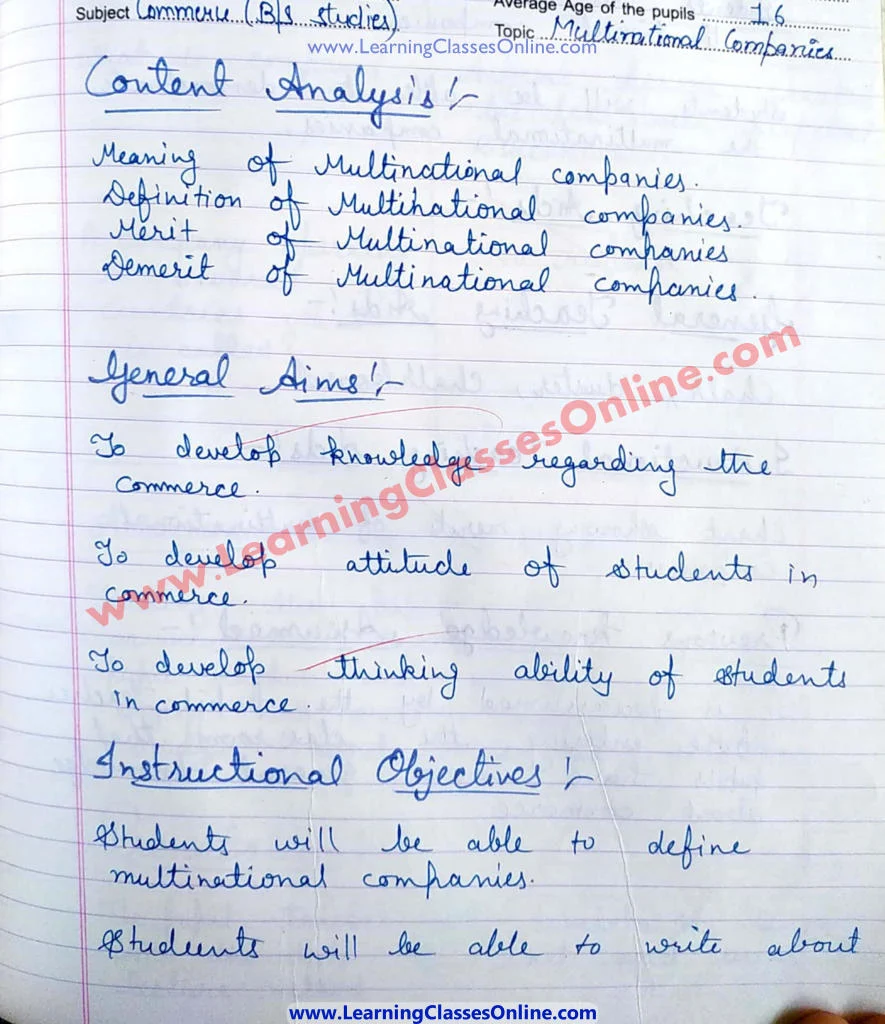 Subject Commerce (B/S studies)
Average Age of the pupils 16
www.LearningClassesOnline.com
Topic Multinational Companies
Content Analysis :-
Meaning of Multinational companies.
Definition of Multinational companies.
Merit of Multinational companies
Demerit of Multinational companies.
General Aims :-
To develop knowledge regarding the
commerce.
To develop attitude of students in
commerce.
To develop thinking ability of students
in commerce.
www.LearningClassesOnline.com
Instructional Objectives :-
Students will be able to define
multinational companies.
Students will be able to write about
www.LearningClassesOnline.com